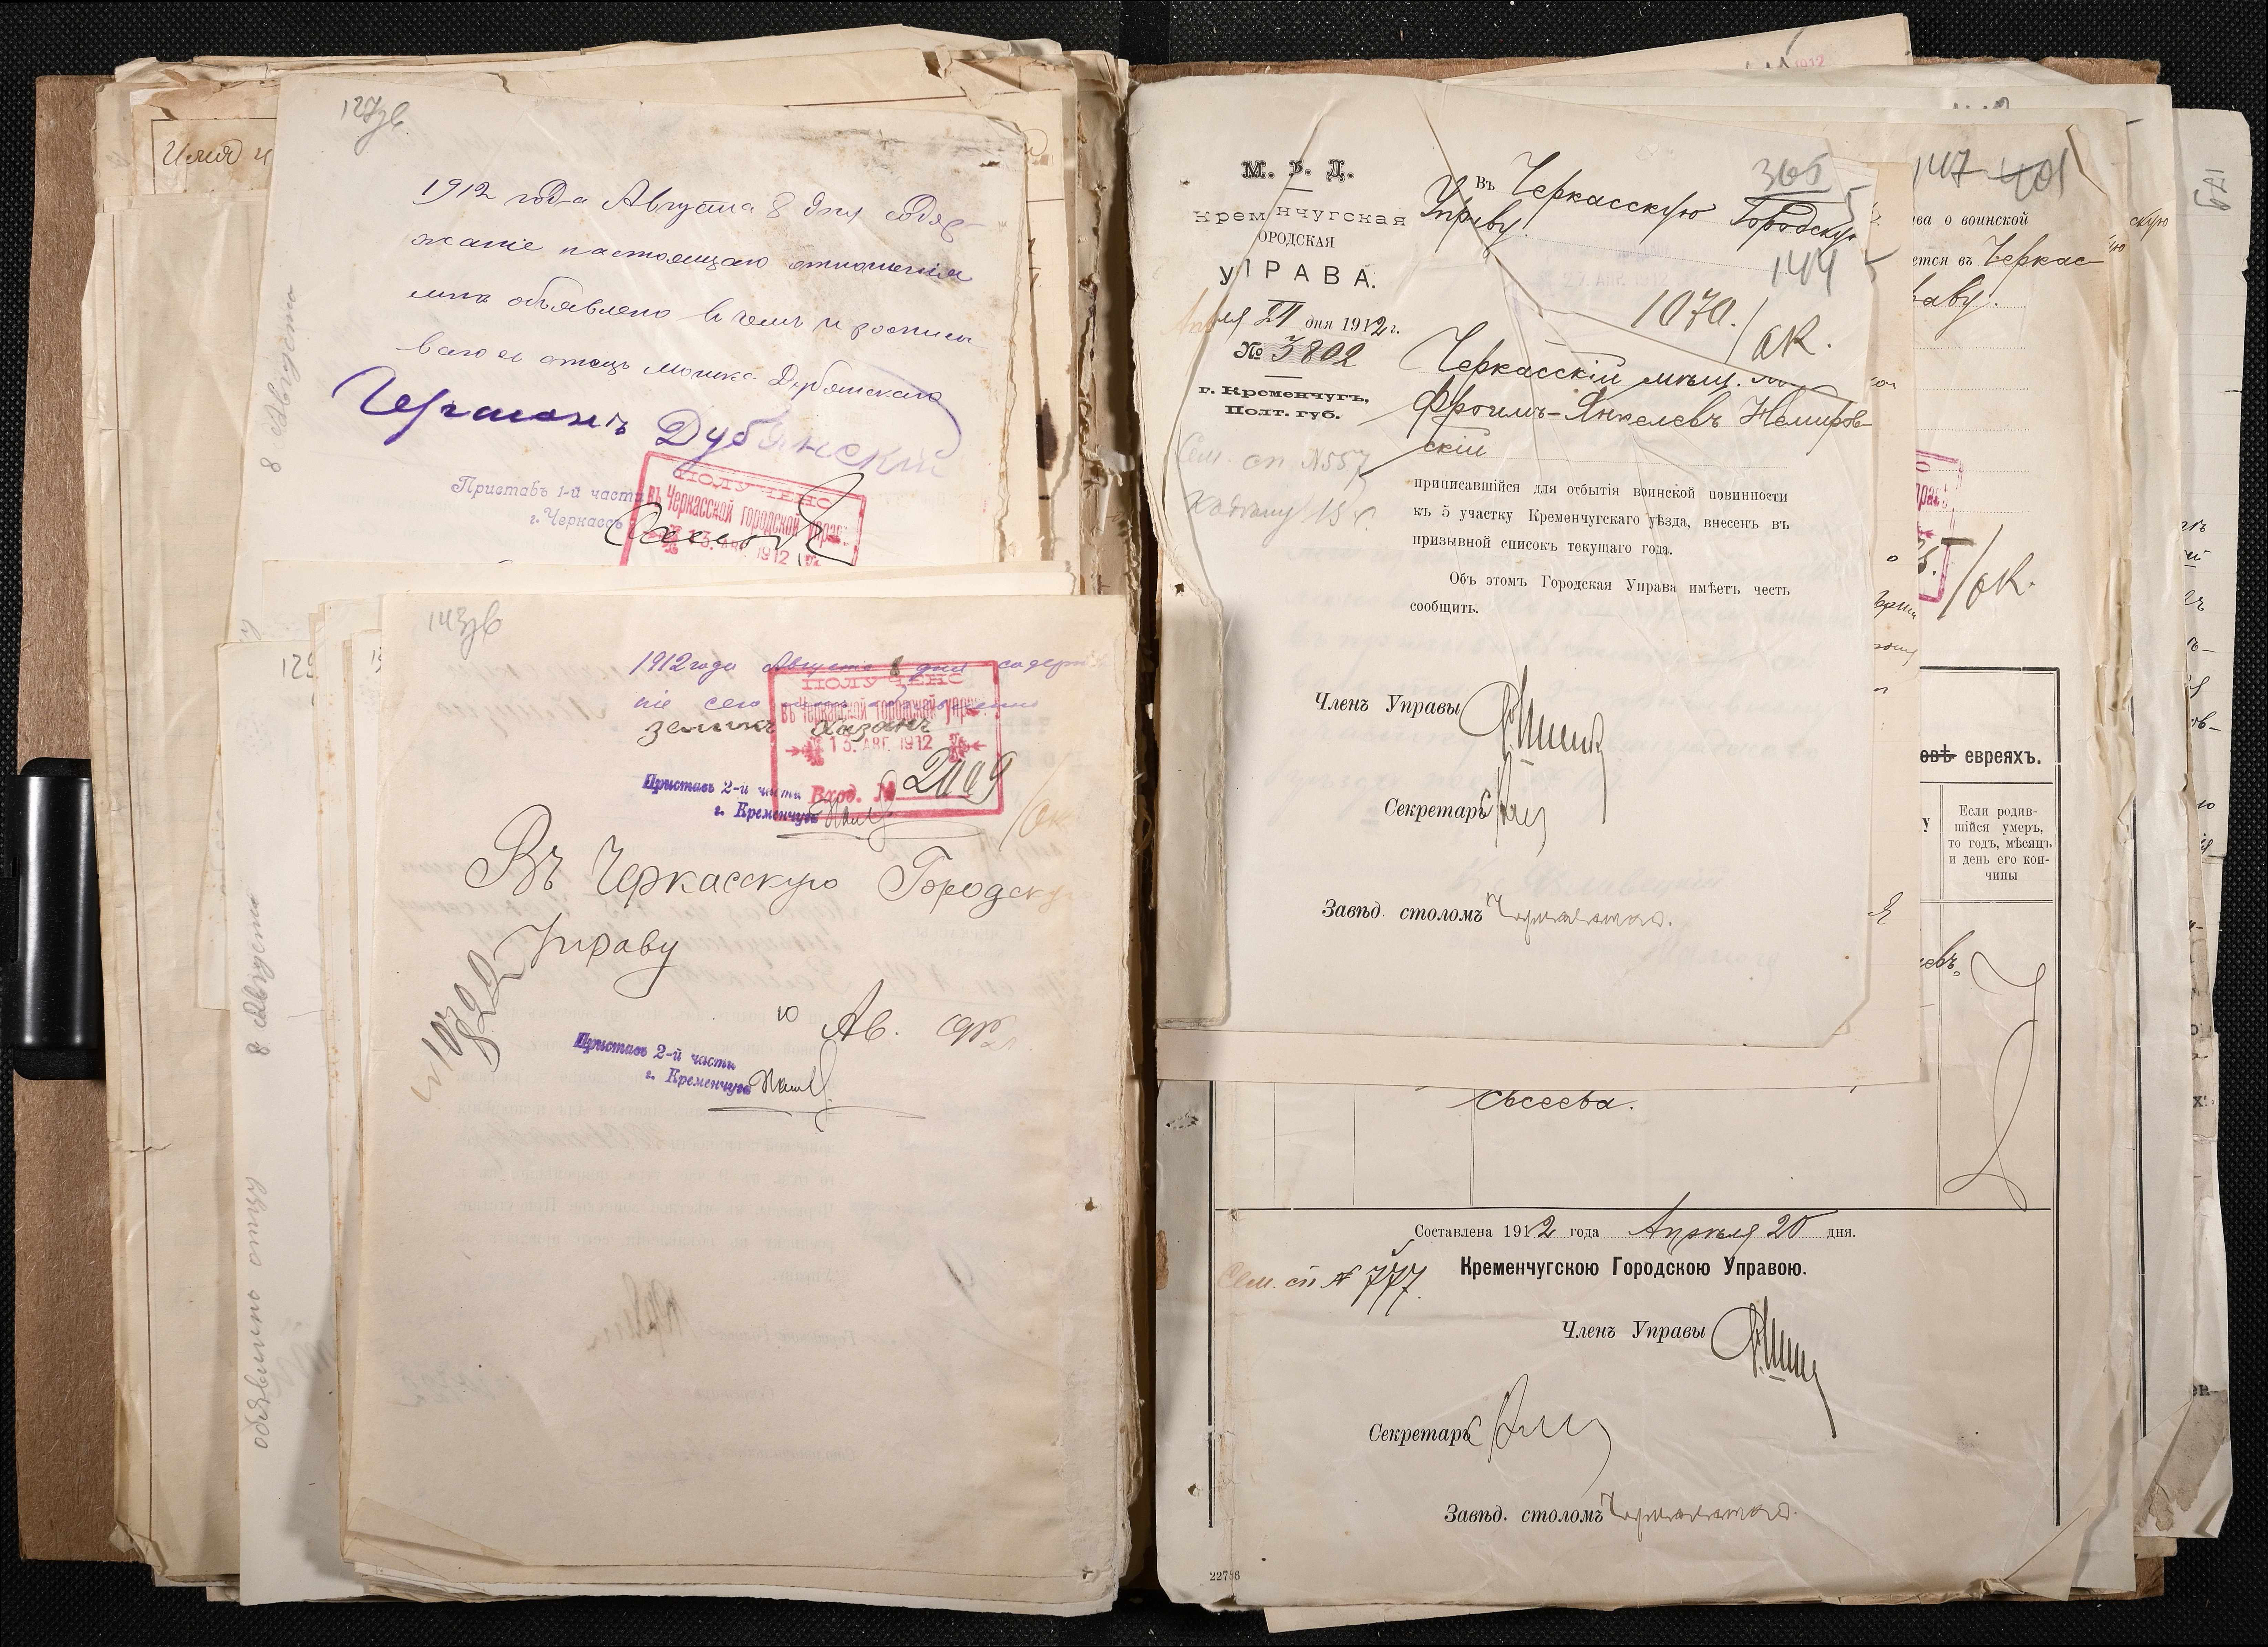 127зв
Имя и
1912 года Августа 8 дня содер-
жаніе настоящаго отношенія
мнѣ объявлено въ чемъ и росписы-
ваюсь отецъ Мошка Дубянскаго
Германъ Дубянскій
Приставъ 1-й части
г. Черкассъ
ПОЛУЧЕНО
въ Черкасской городской управ.
13. АВГ. 1912
8 Августа
143зв
1912 года Августа 8 дня содержа
ніе сего мнѣ объявлено
Зеликъ Хазанъ
ПОЛУЧЕНО
въ Черкасской городской управ.
13. АВГ. 1912
Вход. № 2009
Приставъ 2-й части
г. Кременчуга
/ок.
Въ Черкасскую Городскую
Управу
10 Ав. 912
Приставъ 2-й части
г. Кременчуга
8 Августа
объявлено отцу
М. В. Д.
Кременчугская
ГОРОДСКАЯ
УПРАВА.
Апрѣля 21 дня 1912 г.
№ 3802
г. Кременчугъ,
Полт. губ.
Сем. сп. № 557
365
Въ Черкасскую Городскую
Управу.
144
27. АПР. 1912
1070. /ок.
Черкасскій мѣщ.
Фроимъ-Янкелевъ Немиров-
скій
приписавшійся для отбытія воинской повинности
къ 5 участку Кременчугскаго уѣзда, внесенъ въ
призывной списокъ текущаго года.
Объ этомъ Городская Управа имѣетъ честь
сообщить.
Членъ Управы
Секретарь
Завѣд. столомъ
147 401
ава о воинской
ется въ Черкас
раву.
/ок.
овѣ евреяхъ.
Если родив-
шійся умеръ,
то годъ, мѣсяцъ
и день его кон-
чины
евъ.
Составлена 1912 года Апрѣля 20 дня.
Кременчугскою Городскою Управою.
Сем. сп № 777.
Членъ Управы
Секретарь
Завѣд. столомъ